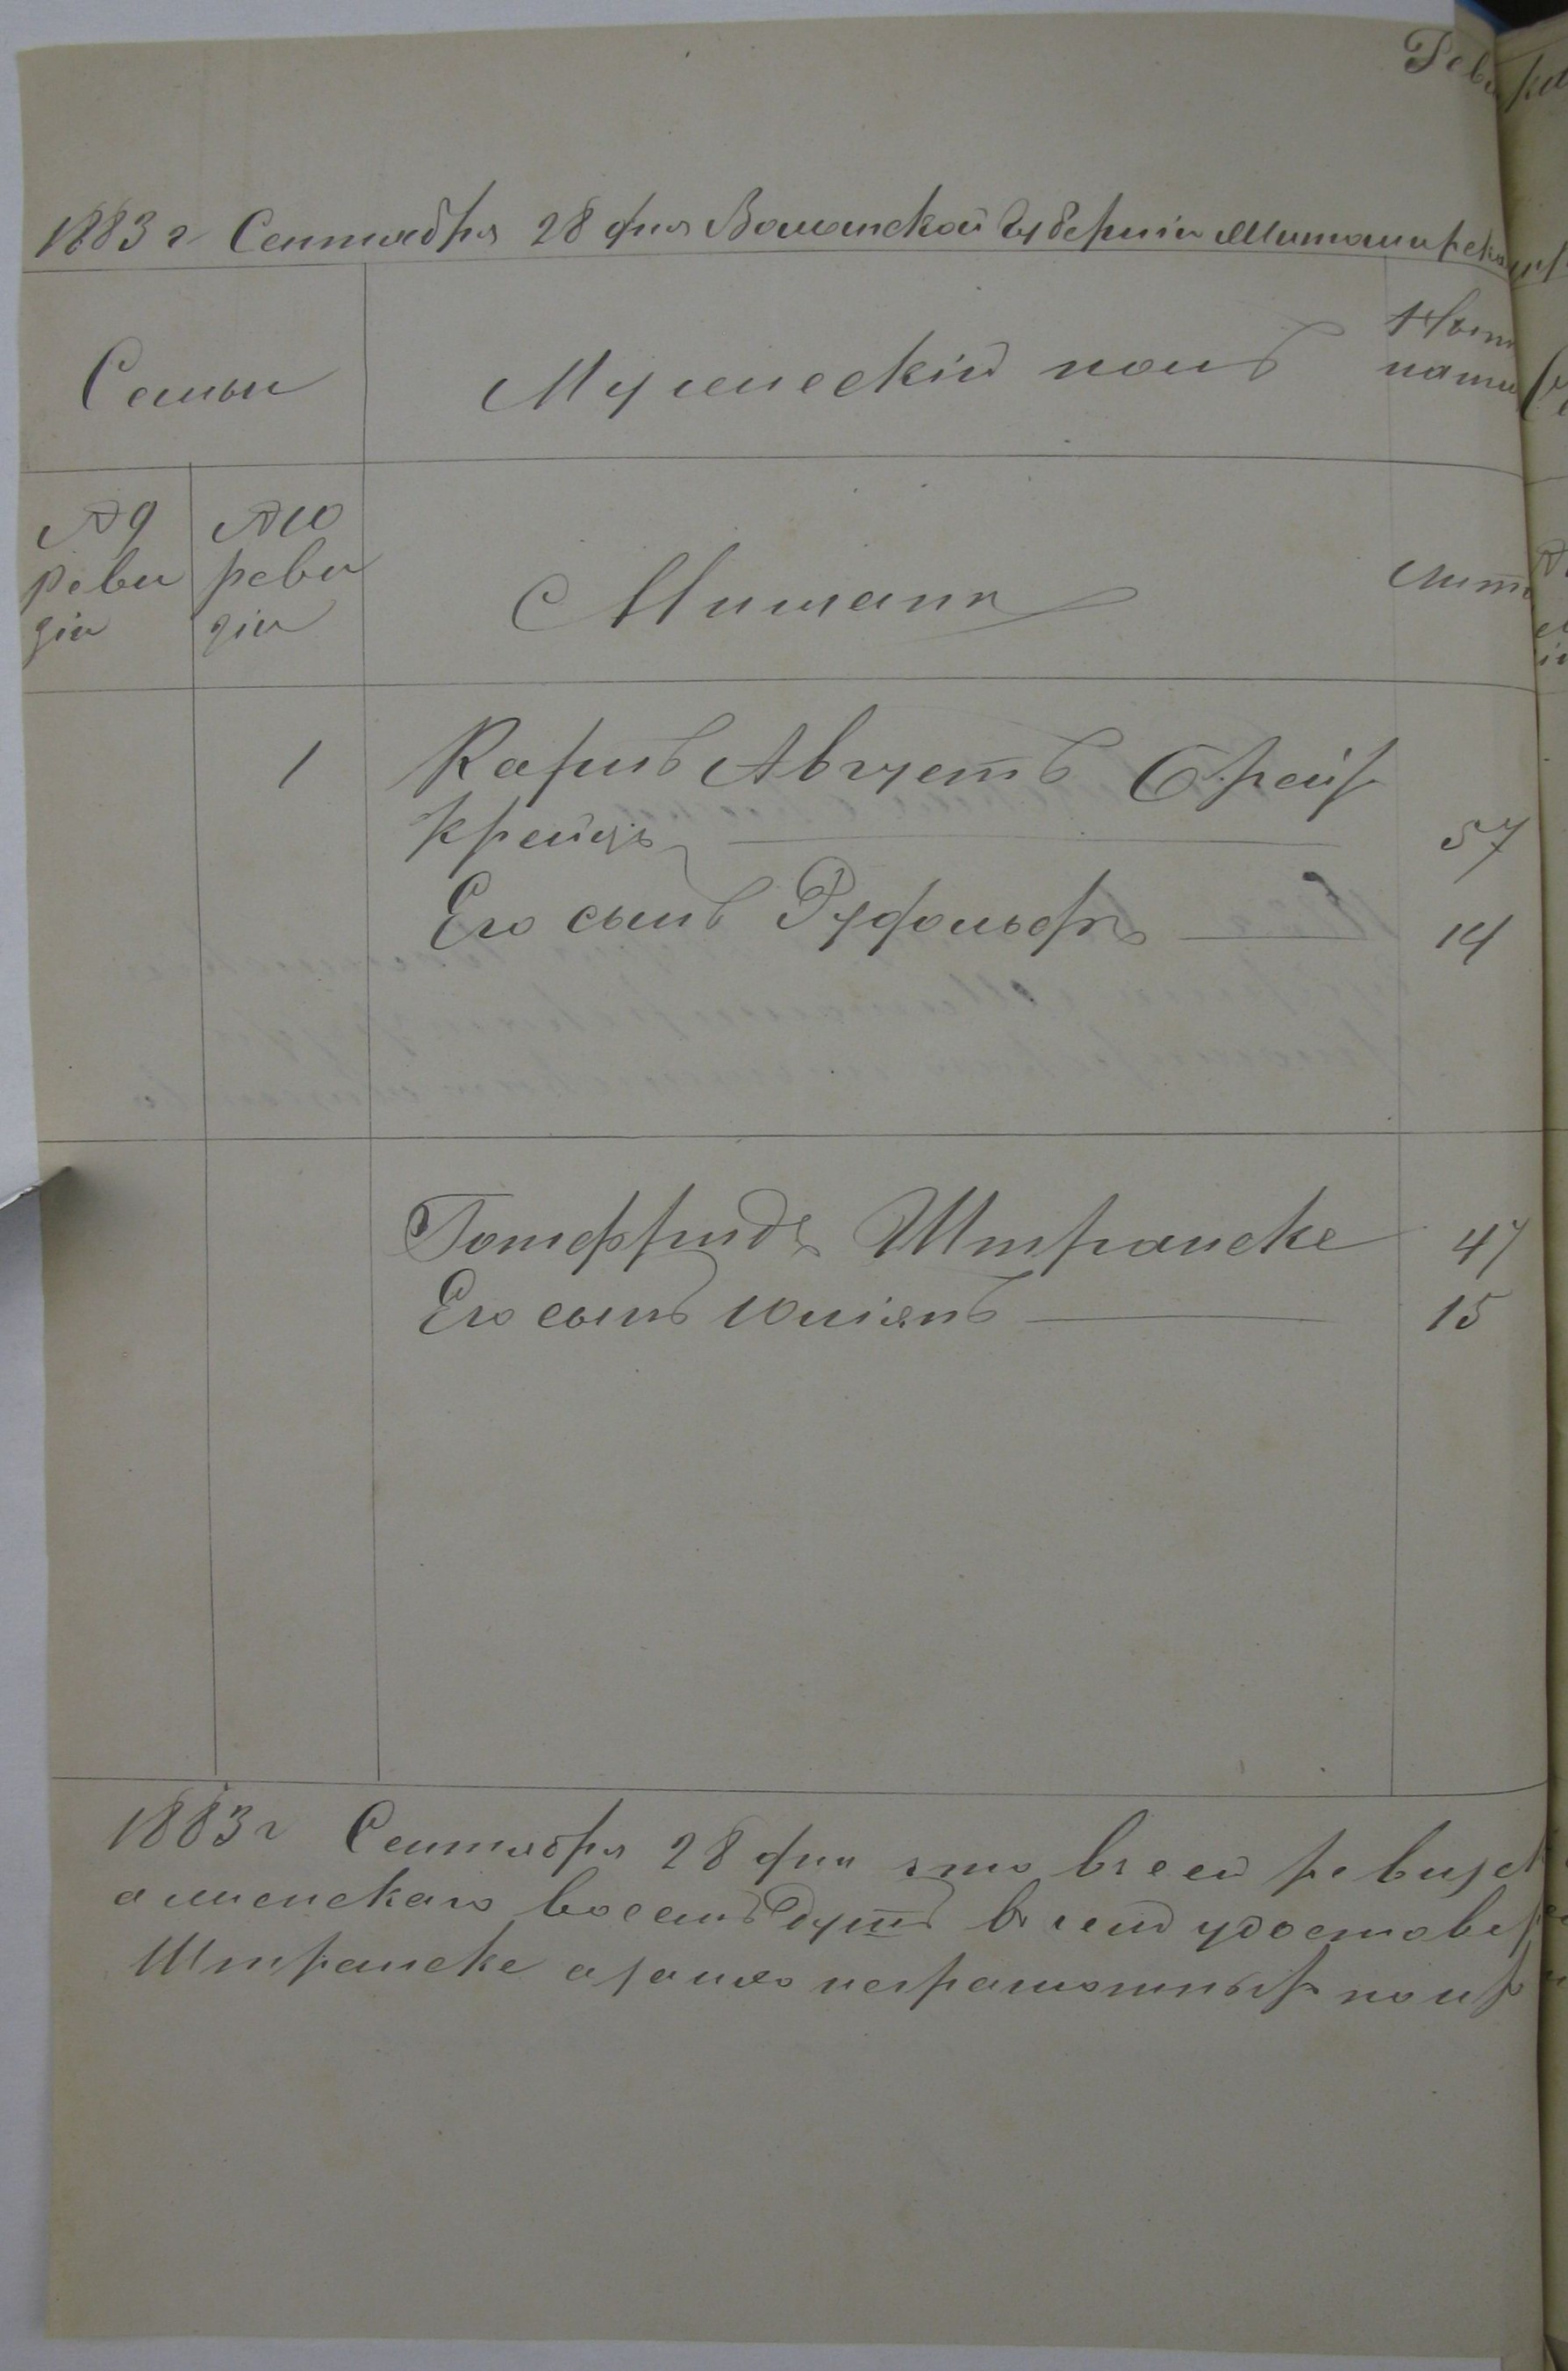 Реви
1883 г Сентября 28 дня Волынской Губерніи Житомирска
Семьи
Мужескій полъ
Нын
налич
№ 9
реви
зіи
№ 10
реви
зіи
Мищани
Лита
1
Карлъ Августъ Брейт
Крейцъ 57
Его сынъ Рудольфъ 14
Готфридъ Штранске 47
Его сынъ Юліянъ 15
1883 г Сентября 28 дня что в сей ревизск
а женскаго восемь душъ в чемъ удостовер
Штранске а за него неграмотныр по ихъ